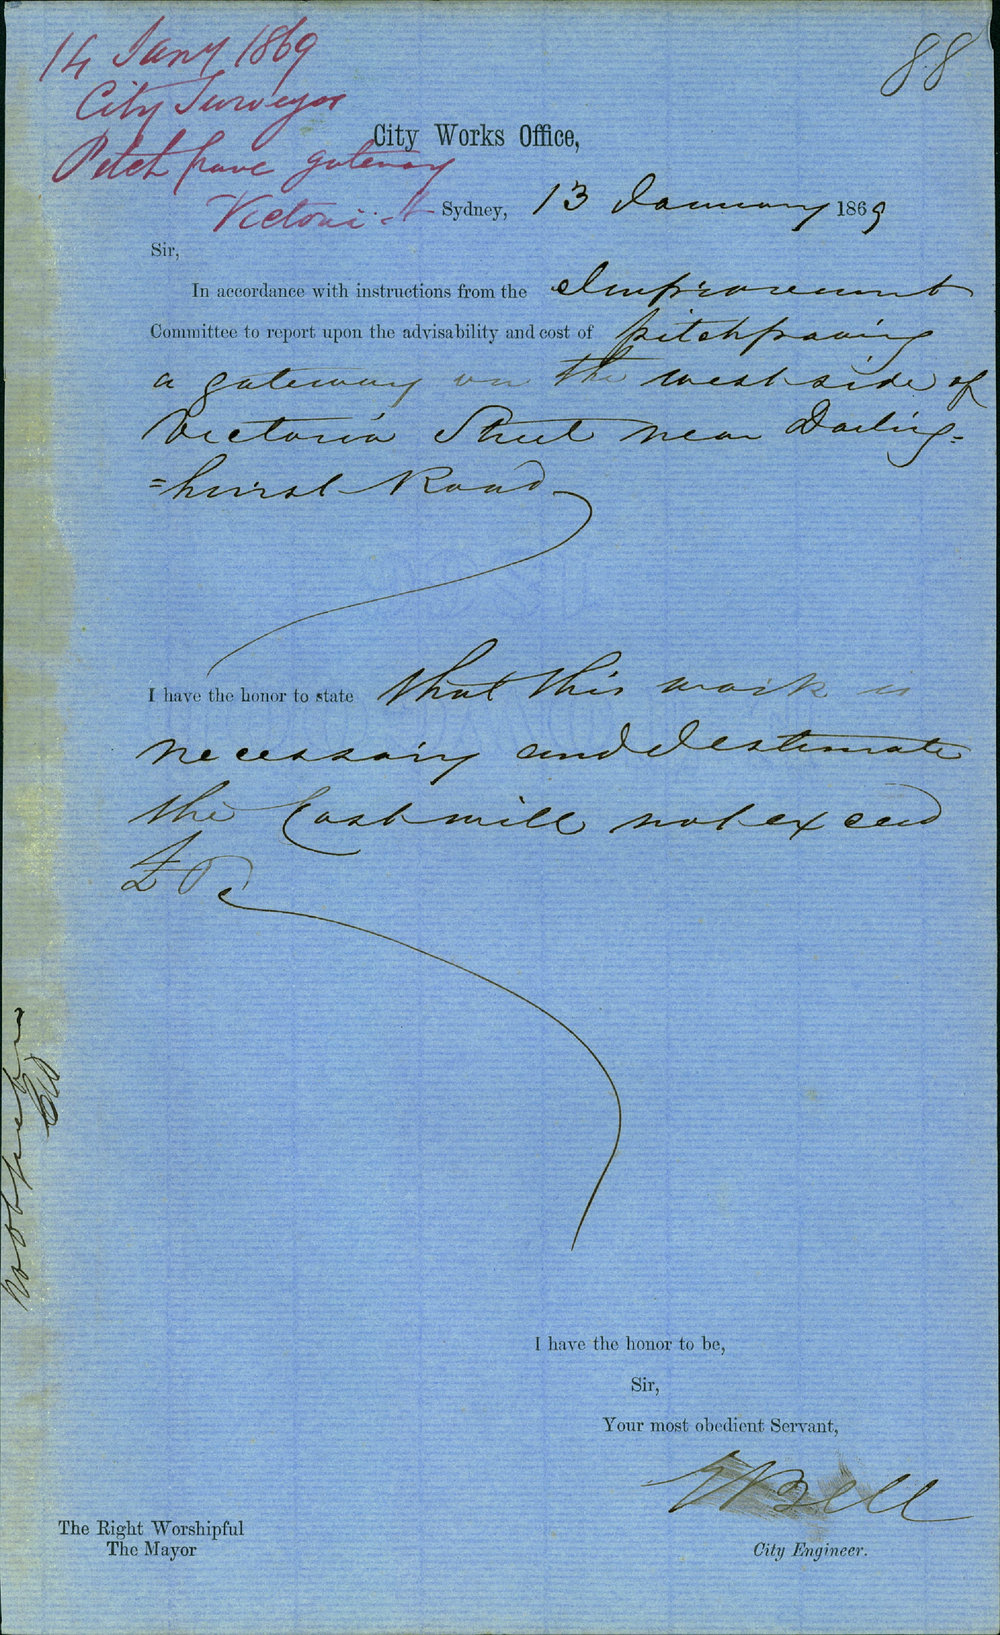 14 Jany 1869
88
City Surveyor
Pitch pave gateway
Victoria St
City Works Office,
Sydney, 13 January 1869
Sir,
In accordance with instructions from the Improvement
Committee to report upon the advisability and cost of pitchpaving
a gateway on the west side of
Victoria Street near Darling-
=hurst Road
I have the honor to state that this work is
necessary and I estimate
the Cost will not exceed
£
I have the honor to be,
Sir,
Your most obedient Servant,
E Bell
City Engineer.
The Right Worshipful
The Mayor